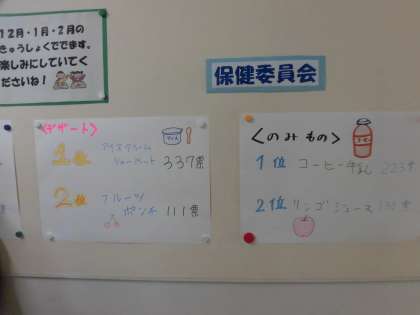 12月・1月・2月の
きゅうしょくででます。
楽しみにしていてく
ださいね!
保健委員会
<デザート>
1位 アイスクリーム
シャーベット 337票
2位 フルーツ
ポンチ 111票
<のみもの>
1位 コーヒー牛乳 223票
2位 リンゴジュース